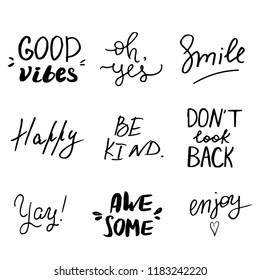 GOOD
vibes
oh,
yes
Smile
Happy
BE
KIND.
DON'T
look
BACK
Yay!
AWE
SOME
enjoy
shutterstock.com · 1183242220